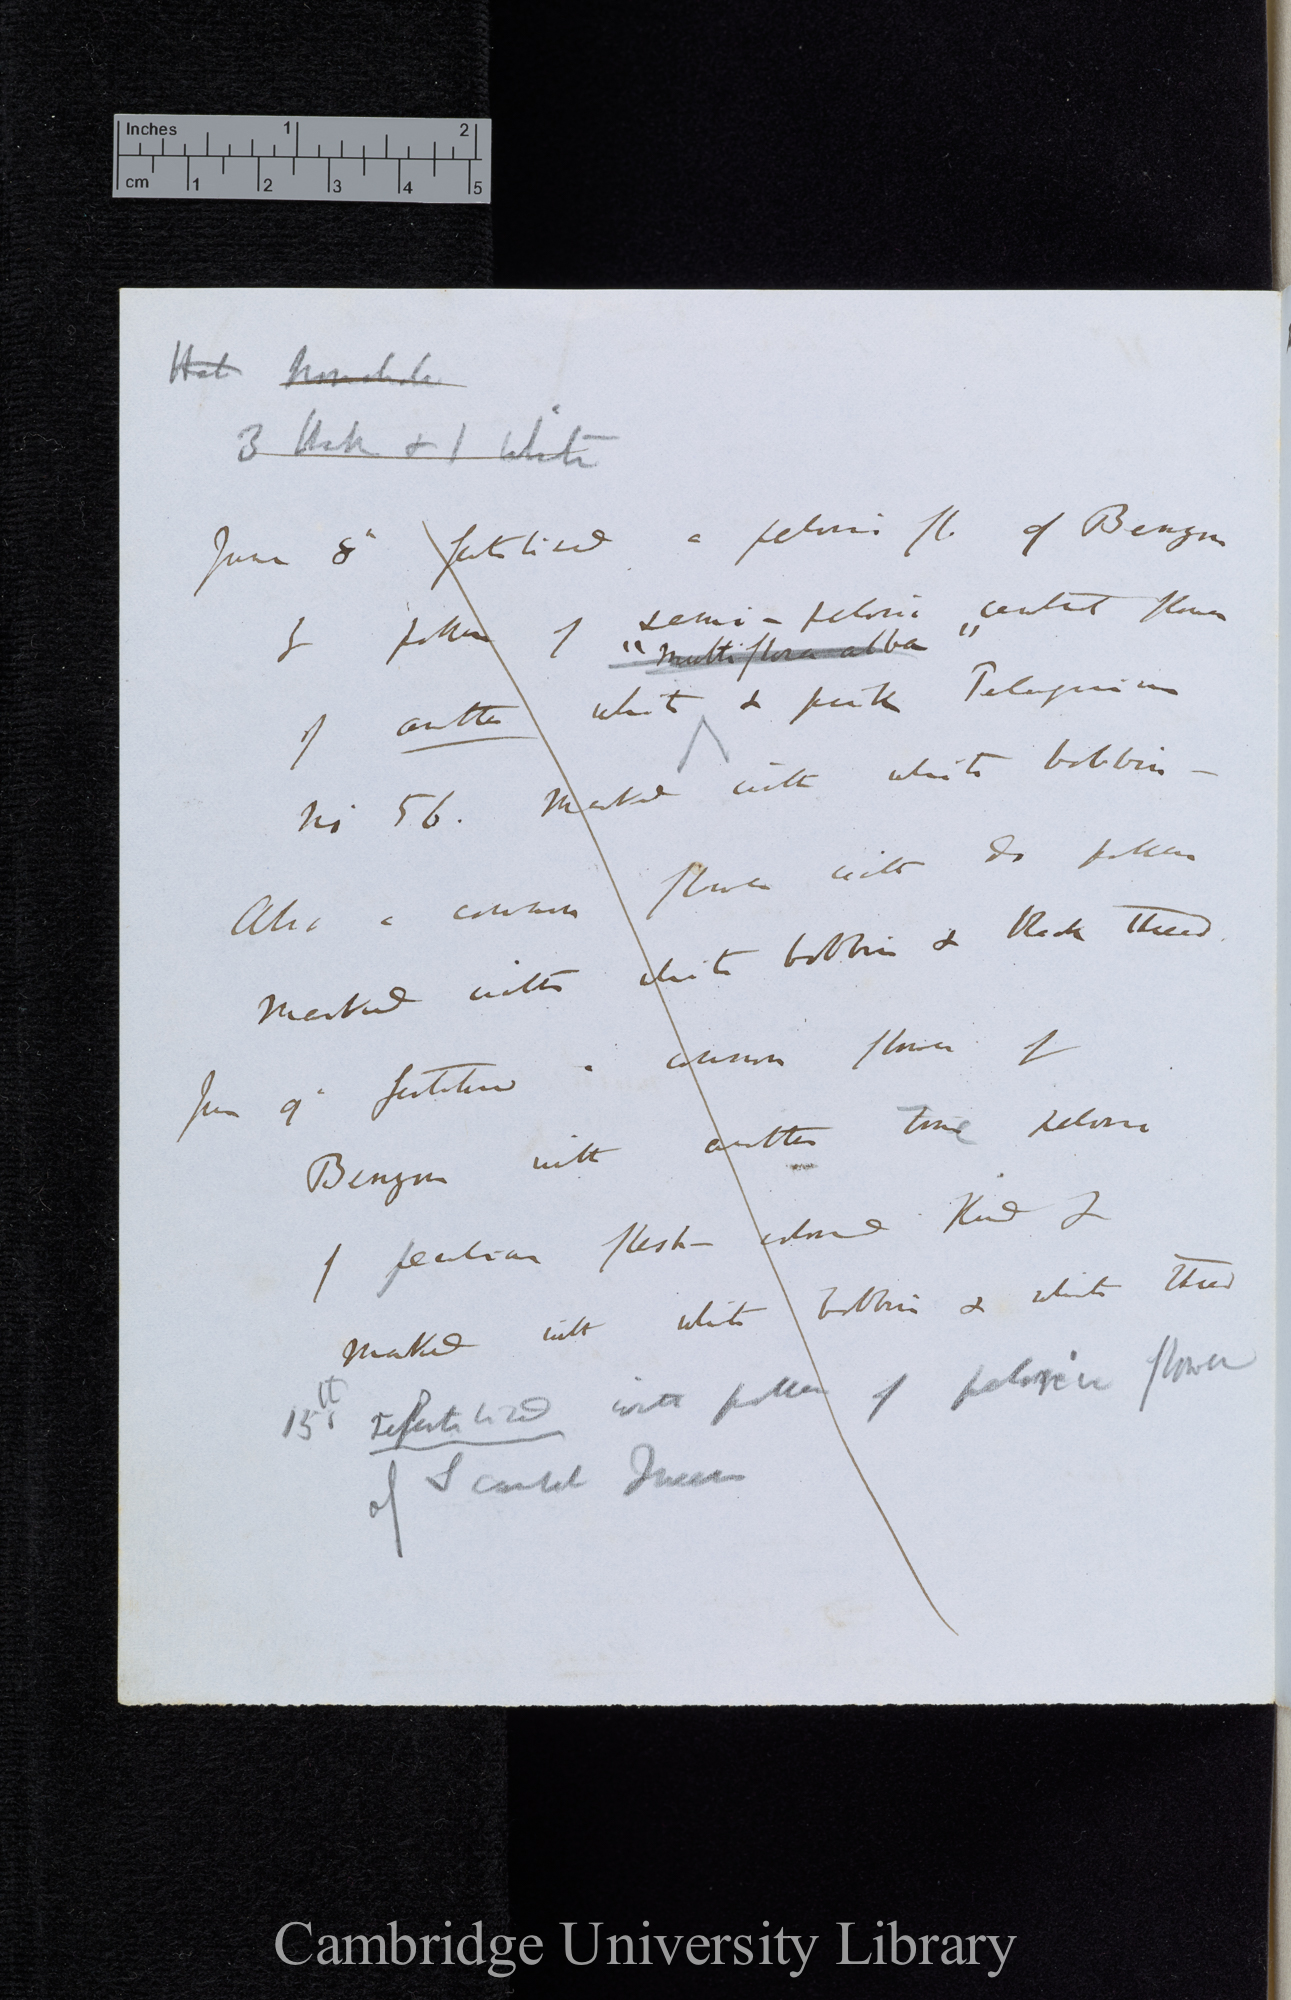 Inches 1 2
cm 1 2 3 4 5
3 black & 1 White
June 8th fertilised a peloric fl. of Bengou
by pollen of semi-peloric central flower
"multiflora alba"
of another white & pink Pelargonium
No 56. Marked with white bobbin –
Also a common flower with do pollen
Marked with white bobbin & black thread.
June 9th fertilised a common flower of
Bengou with another true peloric
of peculiar flesh-coloured kind &
marked with white bobbin & white thread
15th refertilized with pollen of peloric flower
of Scarlet Queen
Cambridge University Library